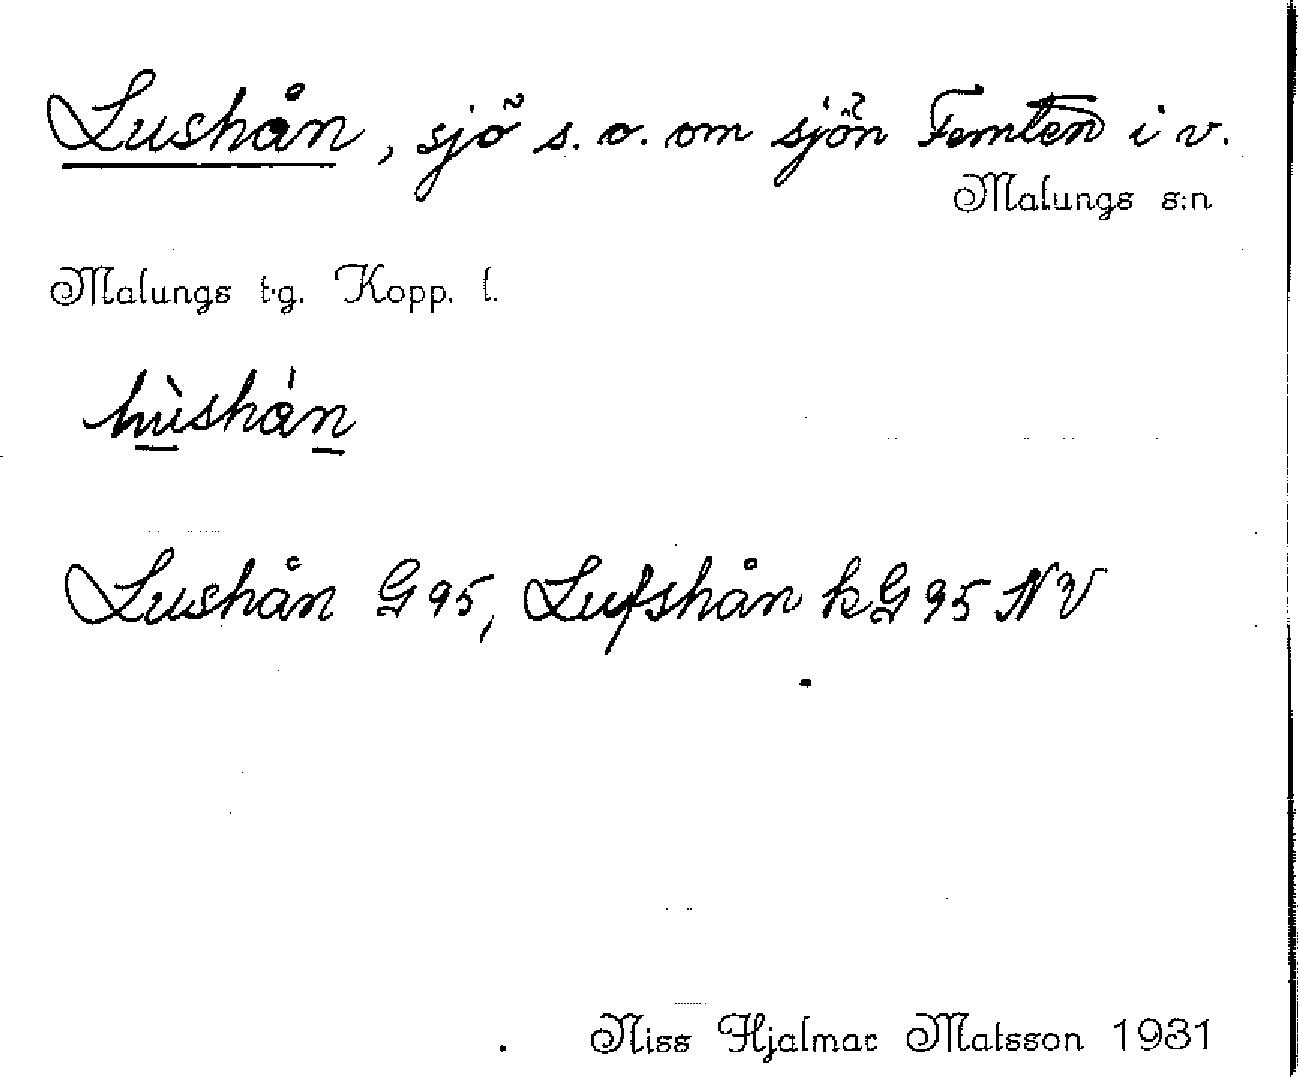 Lushån, sjö s. o. om sjön Femten i v.
Malungs s:n
Malungs t.g. Kopp. l.
Lushån G 95, Lufshån kG 95 NV
Niss Hjalmar Matsson 1931